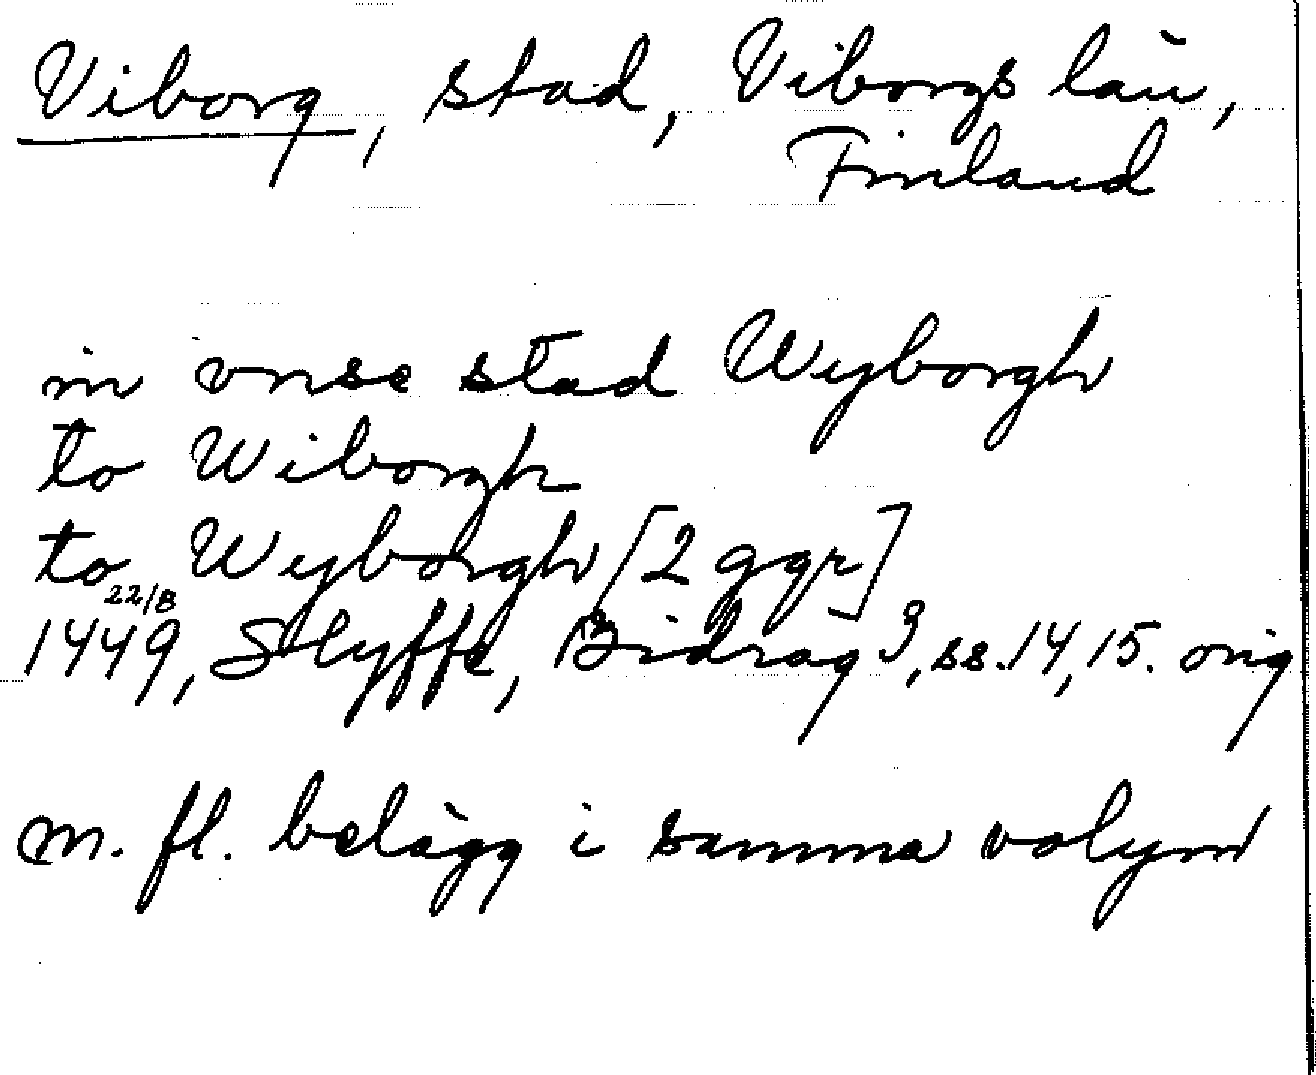 Viborg, stad, Viborgs län,
Finland
in vnse stad Wyborgh
to Wiborgh
to Wyborgh [2 ggr]
22/8
1449, Styffe, Bidrag 3, ss. 14, 15. orig
m. fl. belägg i samma volym